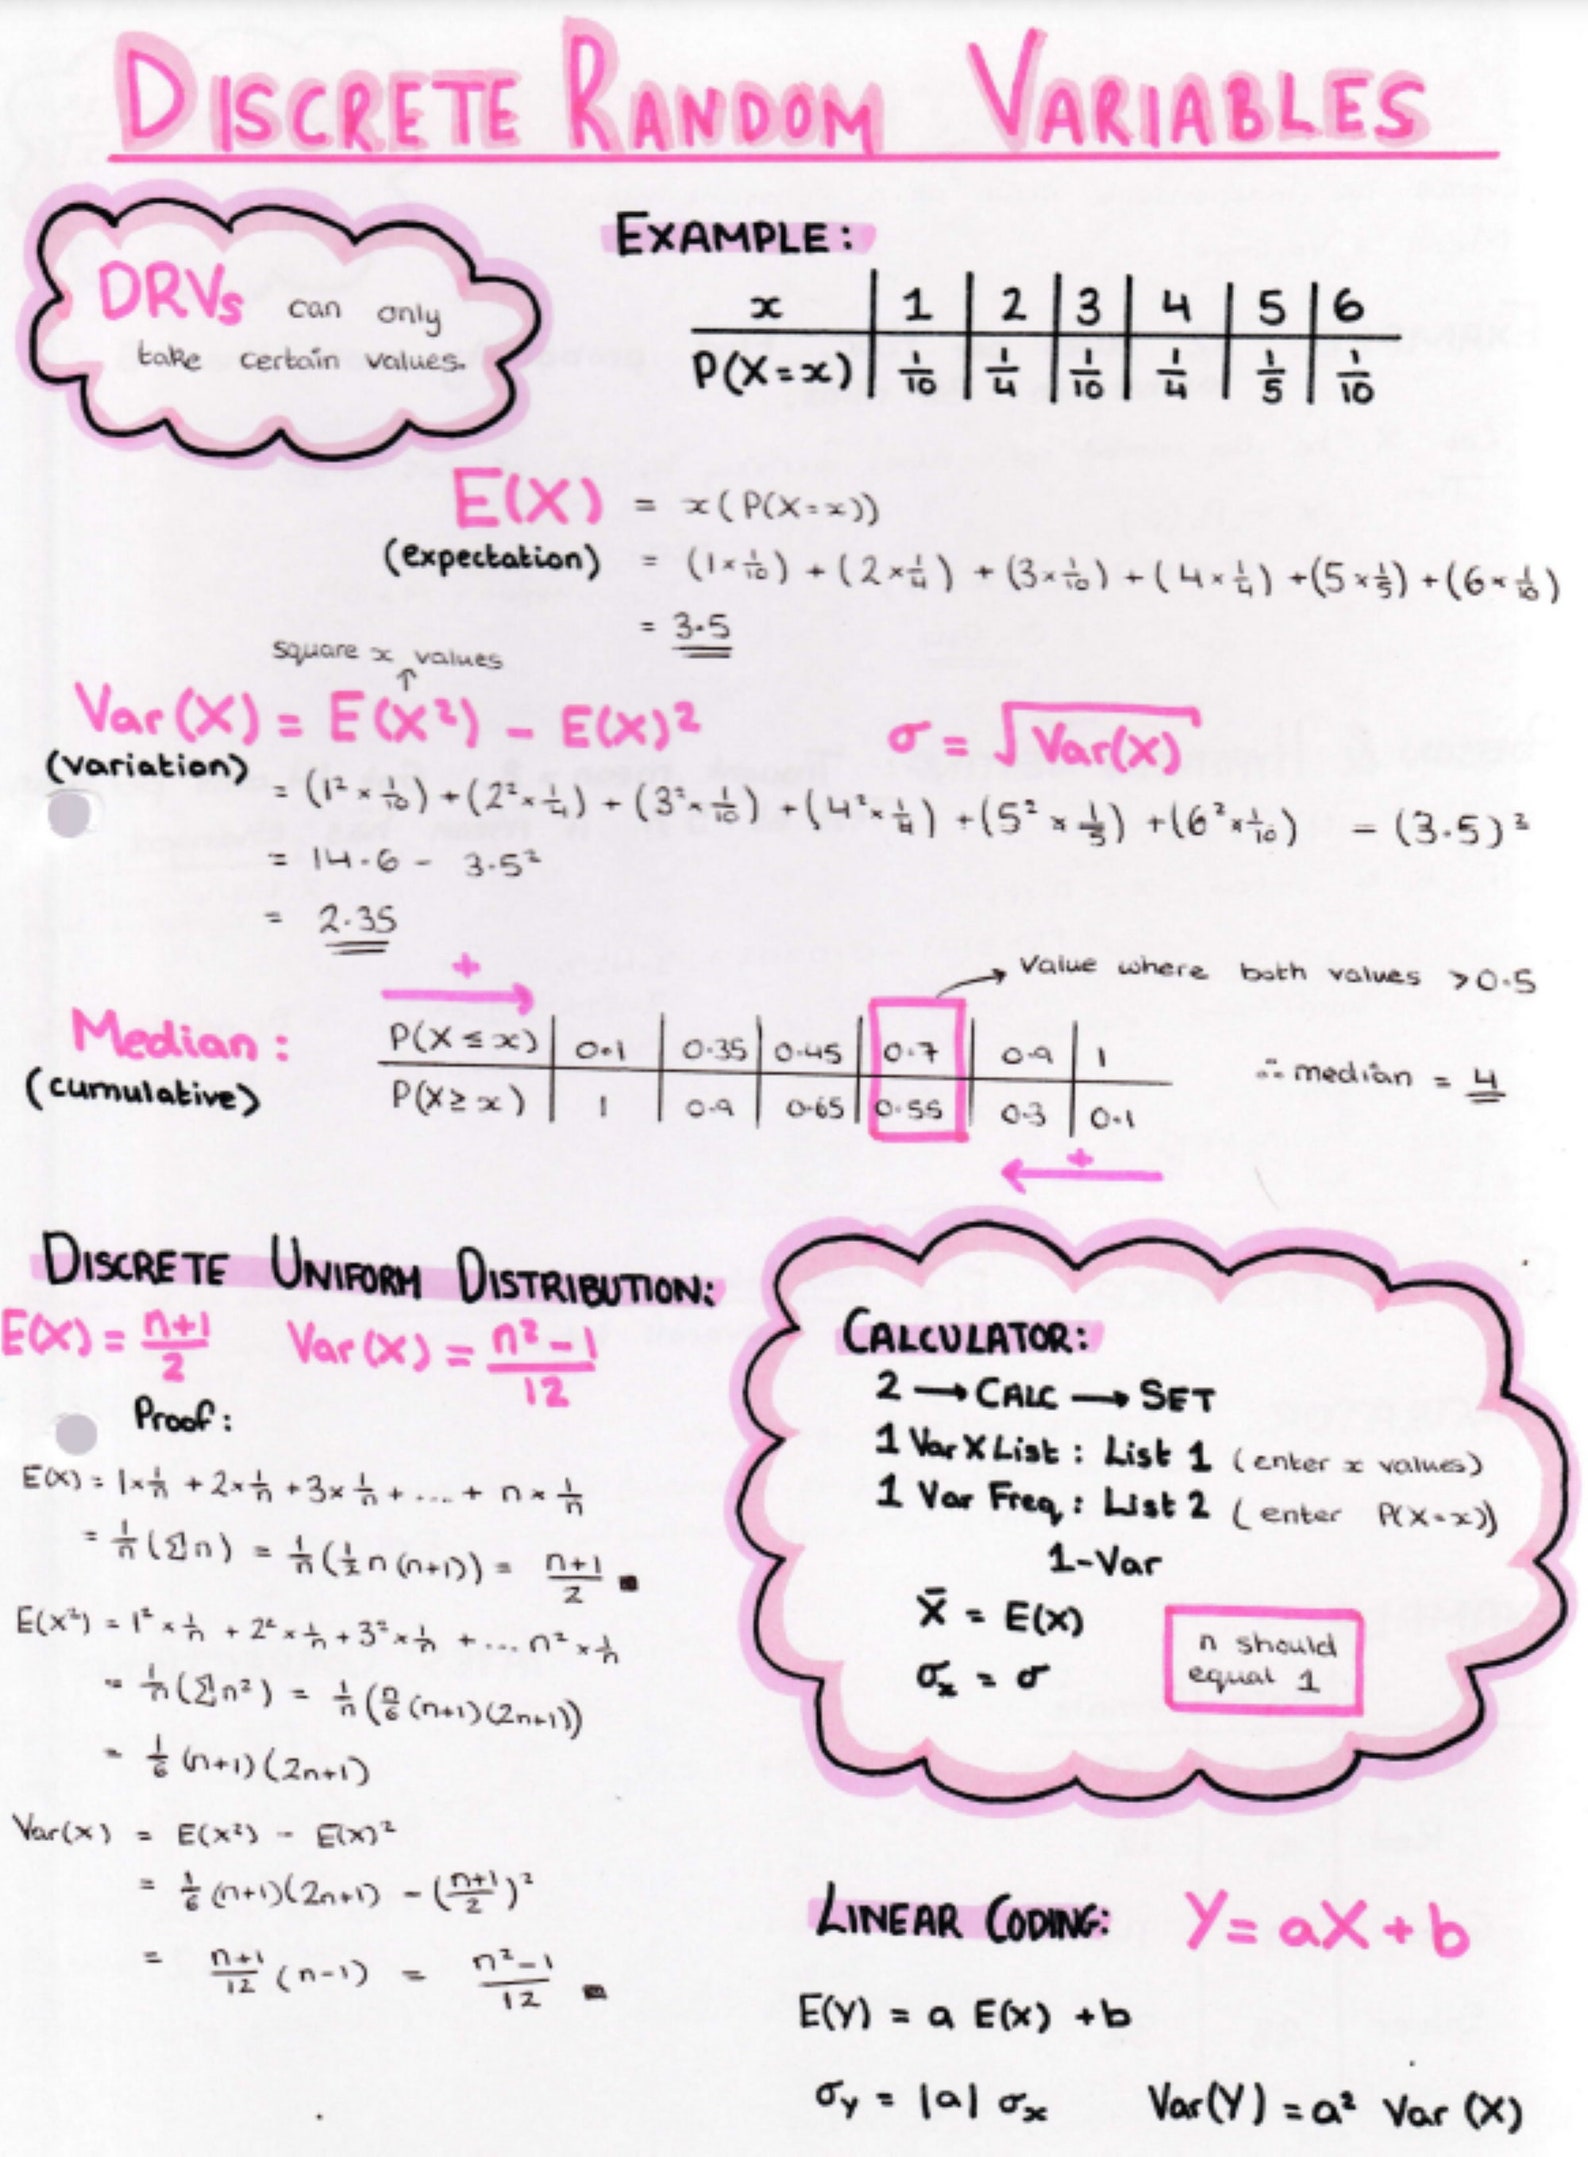 DISCRETE RANDOM VARIABLES
DRVs can only
take certain values.
EXAMPLE:
x | 1 | 2 | 3 | 4 | 5 | 6
P(X=x) | 1/10 | 1/4 | 1/10 | 1/4 | 1/5 | 1/10
E(X) = x(P(X=x))
(expectation) = (1×1/10) + (2×1/4) + (3×1/10) + (4×1/4) + (5×1/5) + (6×1/10)
= 3.5
square x values
↑
Var(X) = E(X²) - E(X)²
σ = √Var(X)
(variation) = (1² × 1/10) + (2² × 1/4) + (3² × 1/10) + (4² × 1/4) + (5² × 1/5) + (6² × 1/10) - (3.5)²
= 14.6 - 3.5²
= 2.35
+
→ Value where both values >0.5
Median: P(X ≤ x) | 0.1 | 0.35 | 0.45 | 0.7 | 0.9 | 1
(cumulative) P(X ≥ x) | 1 | 0.9 | 0.65 | 0.55 | 0.3 | 0.1
∴ median = 4
+
DISCRETE UNIFORM DISTRIBUTION:
E(X) = n+1/2 Var(X) = n²-1/12
Proof:
E(X) = 1×1/n + 2×1/n + 3×1/n + ... + n×1/n
= 1/n (Σn) = 1/n (1/2 n(n+1)) = n+1/2 ■
E(X²) = 1² × 1/n + 2² × 1/n + 3² × 1/n + ... n² × 1/n
= 1/n (Σn²) = 1/n (n/6 (n+1)(2n+1))
= 1/6 (n+1)(2n+1)
Var(X) = E(X²) - E(X)²
= 1/6 (n+1)(2n+1) - (n+1/2)²
= n+1/12 (n-1) = n²-1/12 ■
CALCULATOR:
2 → CALC → SET
1 Var X List : List 1 (enter x values)
1 Var Freq : List 2 (enter P(X=x))
1-Var
x̄ = E(X)
σₓ = σ
n should
equal 1
LINEAR CODING: Y = aX + b
E(Y) = a E(X) + b
σY = |a| σx Var(Y) = a² Var(X)